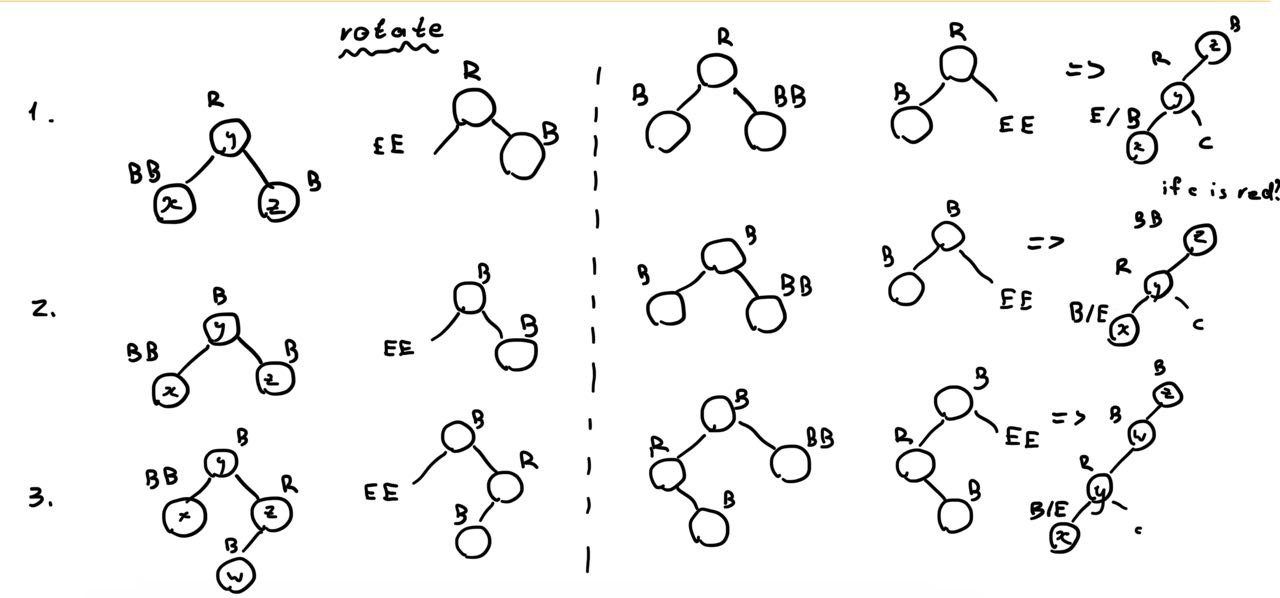 rotate
1.
R
y
BB
x
B
z
R
EE
B
R
B
BB
R
B
EE
=>
B
z
R
y
E/B
x
c
if c is red?
2.
B
y
BB
x
B
z
B
EE
B
B
B
BB
B
B
EE
=>
BB
z
R
y
B/E
x
c
3.
B
y
BB
x
R
z
B
w
B
EE
R
B
B
R
BB
B
B
R
EE
B
=>
B
z
B
w
R
y
B/E
x
c